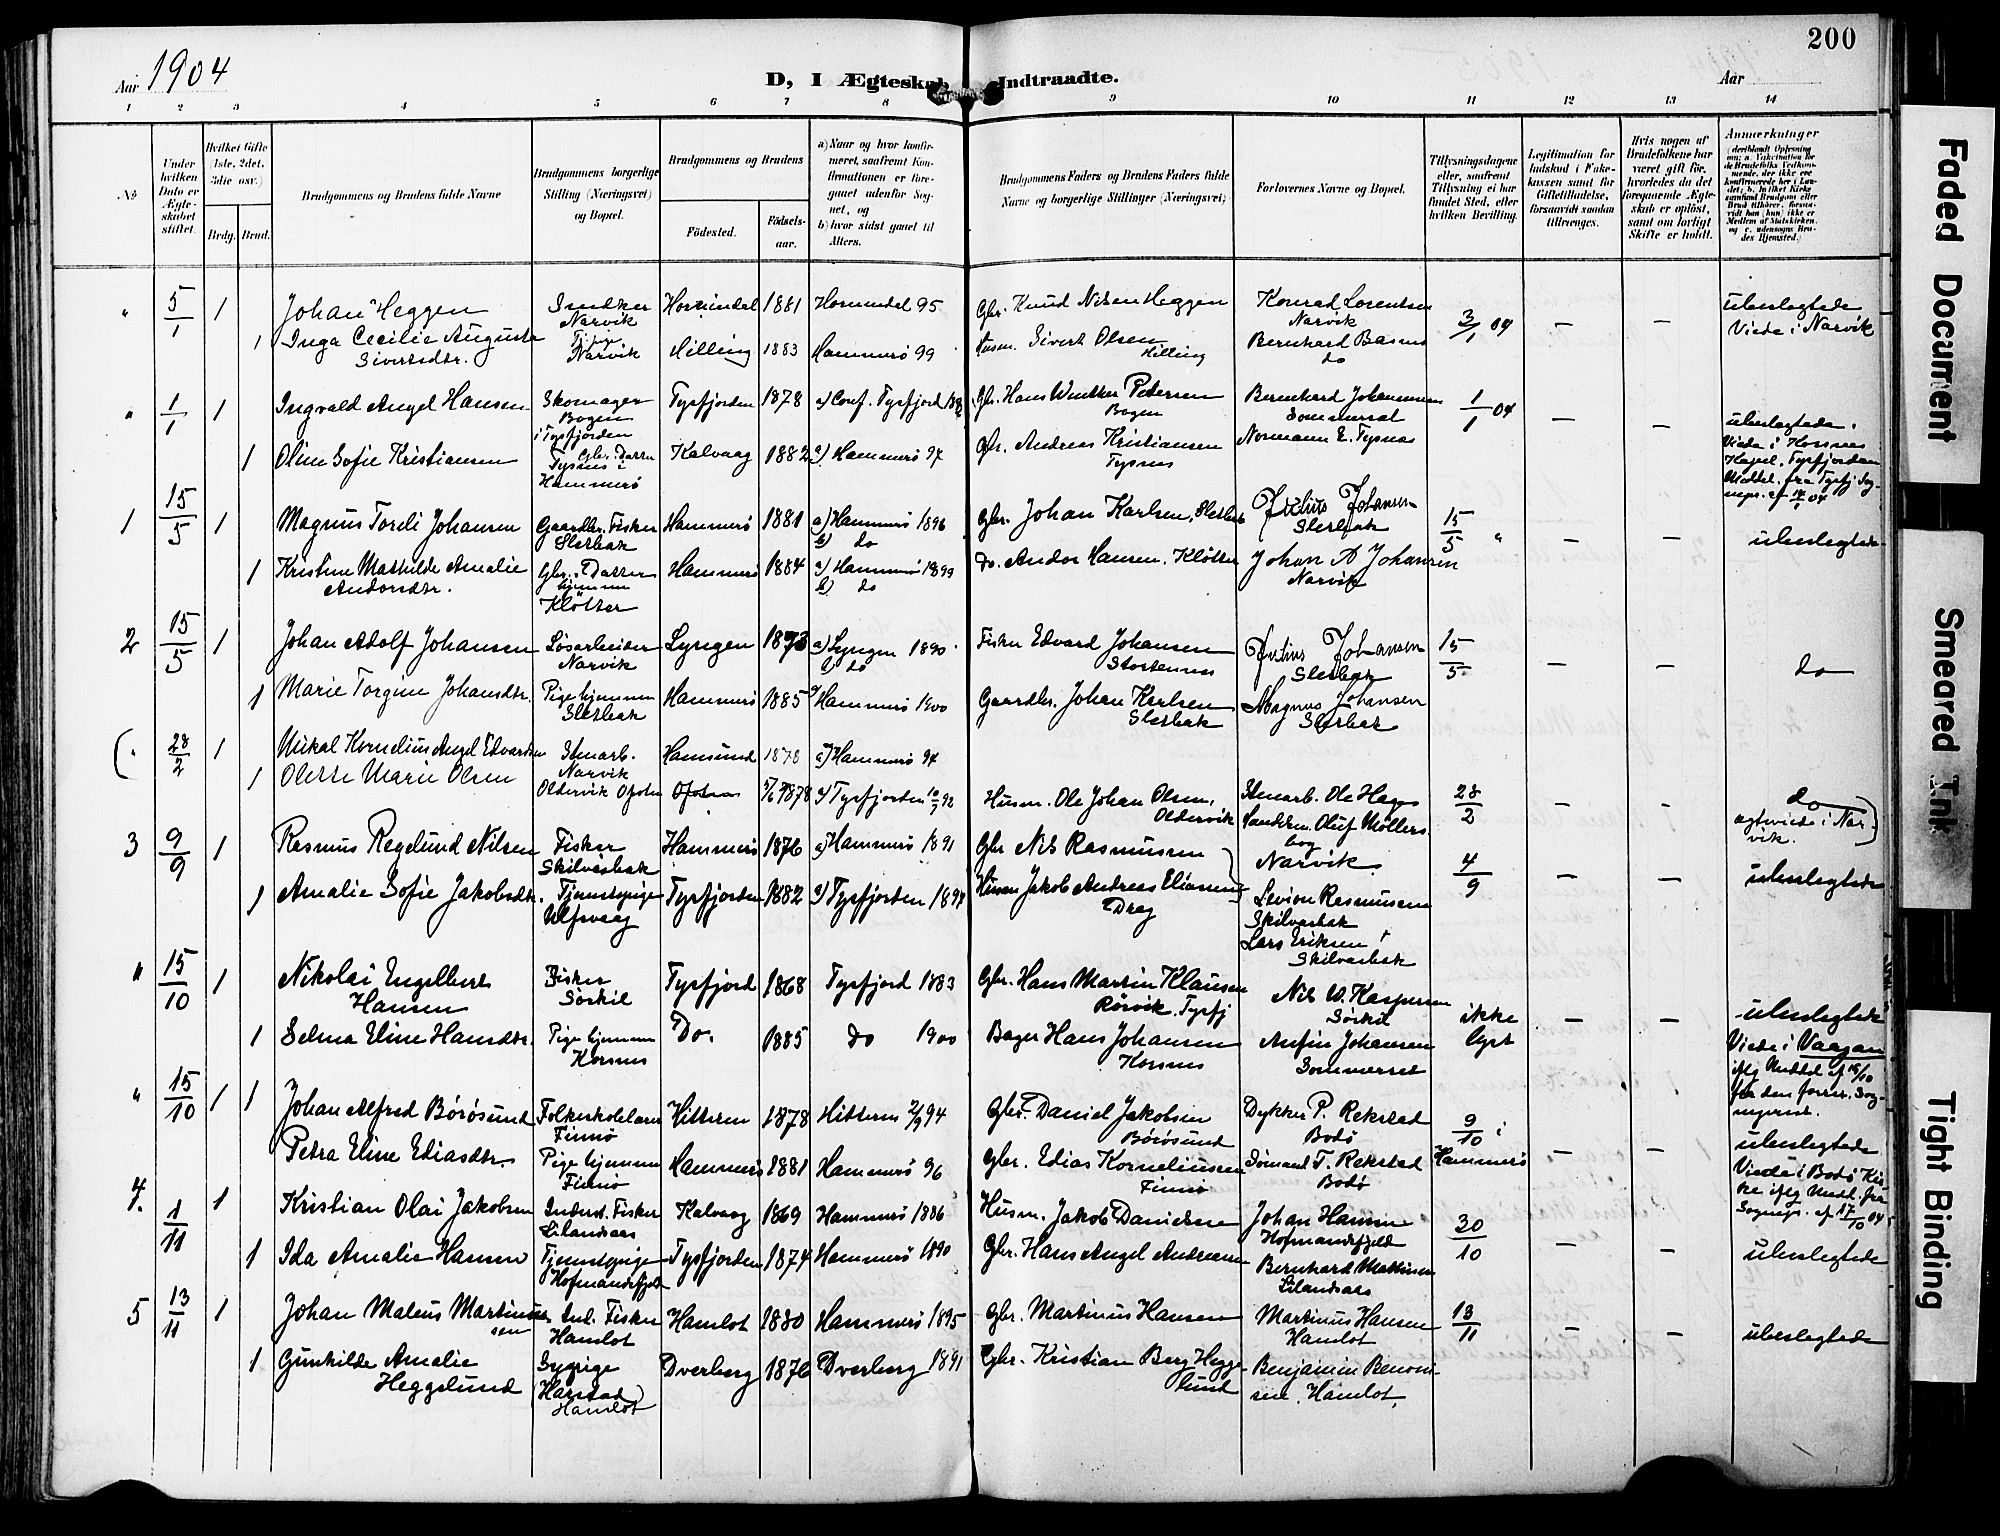 200
Aar 1904
D, I Ægteskab Indtraadte.
Aar
1 2 3 4 5 6 7 8 9 10 11 12 13 14
No
Under hvilken Dato er Ægteskabet stiftet.
Hvilket Gifte (1ste, 2det, 3die osv.)
Brdg. Brud.
Brudgommens og Brudens fulde Navne
Brudgommens borgerlige Stilling (Næringsvei) og Bopæl.
Brudgommens og Brudens
Födested. Födselsaar.
a) Naar og hvor konfirmeret, saafremt Konfirmationen er foregaaet udenfor Sognet, og
b) hvor sidst gaaet til Alters.
Brudgommens Faders og Brudens Faders fulde Navne og borgerlige Stillinger (Næringsvei)
Forlovernes Navne og Bopæl.
Tillysningsdagene eller, saafremt Tillysning ei har fundet Sted, efter hvilken Bevilling.
Legitimation for Indskud i Enkekassen samt for Giftetilladelse, forsaavidt saadan tiltrænges.
Hvis nogen af Brudefolkene har været gift för, hvorledes da det foregaaende Ægteskab er oplöst, samt om lovligt Skifte er holdt.
Anmerkninger
" 5/1 1 Johan Heggen Snedker Narvik Hornindal 1881 Hornindal 95 Gbr. Knud Nilsen Heggen Konrad Lorentsen Narvik 3/1 04 — — ubeslegtede Viede i Narvik
1 Inga Cecilie Auguste Sivertsdtr. Narvik Hilling 1883 Hammerö 99 Husm. Sivert Olsen Hilling Bernhard do
" 1/1 1 Ingvald Angel Hansen Skomager Bogen i Tysfjorden Tysfjorden 1878 a) Conf. Tysfjord Gbr. Hans Winther Pedersen Bogen Bernhard Johannesen Sommerset 1/1 04 — — ubeslegtede. Viede i Korsnes Kapel, Tysfjorden
1 Oline Sofie Kristiansen Tysnes i Hammerö Kalvaag 1882 a) Hammerö 97 Gbr. Andreas Kristiansen Tysnes Normann E. Tysnes
1 15/5 1 Magnus Tordi Johansen Gaardbr. Fisker Slesbak Hammerö 1881 a) Hammerö 1896 b) do Gbr. Johan Karlsen, Slesbak Julius Johansen Slesbak 15/5 " — — ubeslegtede
1 Kristine Mathilde Amalie Andorsdtr. Gbr. Datter hjemme Klötter Hammerö 1884 a) Hammerö 1899 b) do do. Andor Hansen, Klötter Johan A Johansen Narvik
2 15/5 1 Johan Adolf Johansen Lösarbeider Narvik Lyngen 1873 a) Lyngen 1890 b) do Fisker Edvard Johansen Stortennes Julius Johansen Slesbak 15/5 — — do
1 Marie Torgine Johansdtr. Pige hjemme Slesbak Hammerö 1885 a) Hammerö 1900 Gaardbr. Johan Karlsen Slesbak Magnus Johansen Slesbak
( " 28/2 1 Mikal Kornelius Angel Edvardsen Stenarb. Narvik Hamsund 1878 a) Hammerö 94
1 Olette Marie Olsen Oldervik Ofoten Ofoten 1878 a) Tysfjorden 92 Husm. Ole Johan Olsen, Oldervik Stenarb. Ole Hages Oluf Möllersbog Narvik. 28/2 — — do egteviede i Narvik. )
3 9/9 1 Rasmus Regelund Nilsen Fisker Skilvasbak Hammerö 1876 a) Hammerö 1891 Gbr Nils Rasmussen 4/9 — — ubeslegtede
1 Amalie Sofie Jakobsdtr. Tjenestepige Ulfsvaag Tysfjorden 1882 a) Tysfjorden 1897 Husm Jakob Andreas Eliassen Drag Levion Rasmussen Skilvasbak Lars Eriksen Skilvasbak
" 15/10 1 Nikolai Engelbert Hansen Fisker Sörkil Tysfjord 1868 Tysfjord 1883 Gbr. Hans Martin Klausen Rörvik, Tysfj Nils W. Kaspersen Sörkil ikke lyst — — ubeslegtede Viede i Vaagan iflg Meddel af 18/10
1 Selma Eline Hansdtr. Pige hjemme Korsnes Do. 1885 do 1900 Bager Hans Johansen Korsnes Anfin Johansen Sommerset
" 15/10 1 1 Johan Alfred Börösund Folkeskolelærer Finnö Hitteren 1878 Hitteren 2/9 94 Gbr. Daniel Jakobsen Börösund Dykker P. Rekstad Bodö 9/10 i Hammerö — — ubeslegtede Viede i Bodö Kirke iflg Medd. fra Sognepr. af 17/10 04
Petra Eline Ediasdtr. Pige hjemme Finnö Hammerö 1881 Hammerö 96 Gbr. Edias Korneliussen Finnö Sömand T. Rekstad Bodö
4. 1/11 1 Kristian Olai Jakobsen Inderst. Fisker Lilandsaas Kalvaag 1869 Hammerö 1886 Husm. Jakob Danielsen Johan Hansen Hofmandsfjeld 30/10 — — ubeslegtede
1 Ida Amalie Hansen Tjenestepige Hofmandsfjeld Tysfjorden 1874 Hammerö 1890 Gbr. Hans Angel Andreassen Bernhard Mathisen Lilandsaas
5 13/11 1 Johan Mateus Martinussen Ind. Fisker Hamlot Hamlot 1880 Hammerö 1895 Gbr. Martinus Hansen Martinus Hansen Hamlot 13/11 — — ubeslegtede
1 Gunhilde Amalie Heggelund Sypige (Harstad) Hamlot Dverberg 1876 Dverberg 1891 Gbr. Kristian Berg Heggelund Benjamin Benonisen, Hamlot.
Faded Document
Smeared Ink
Tight Binding